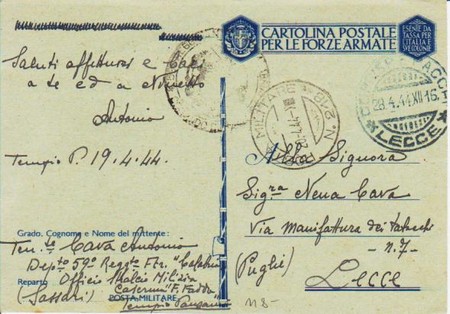 CARTOLINA POSTALE
PER LE FORZE ARMATE
ESENTE DA
TASSA PER
L'ITALIA E
Saluti affettuosi e baci
a te ed a
Antonio
Tempio P. 19.4.44
MILITARE
N. 218
28.4.44 XII 16
LECCE
Alla Signora
Sig.ra Nena Cava
Via Manifattura dei Tabacchi
- n. 7 -
(Puglie) Lecce
Grado, Cognome e Nome del mittente:
Ten.te Cava Antonio
Dep.to 59° Regg.to Ftr. "Calabria"
Reparto
Caserma "F. Fadda"
(Sassari)
POSTA MILITARE
Tempio Pausania